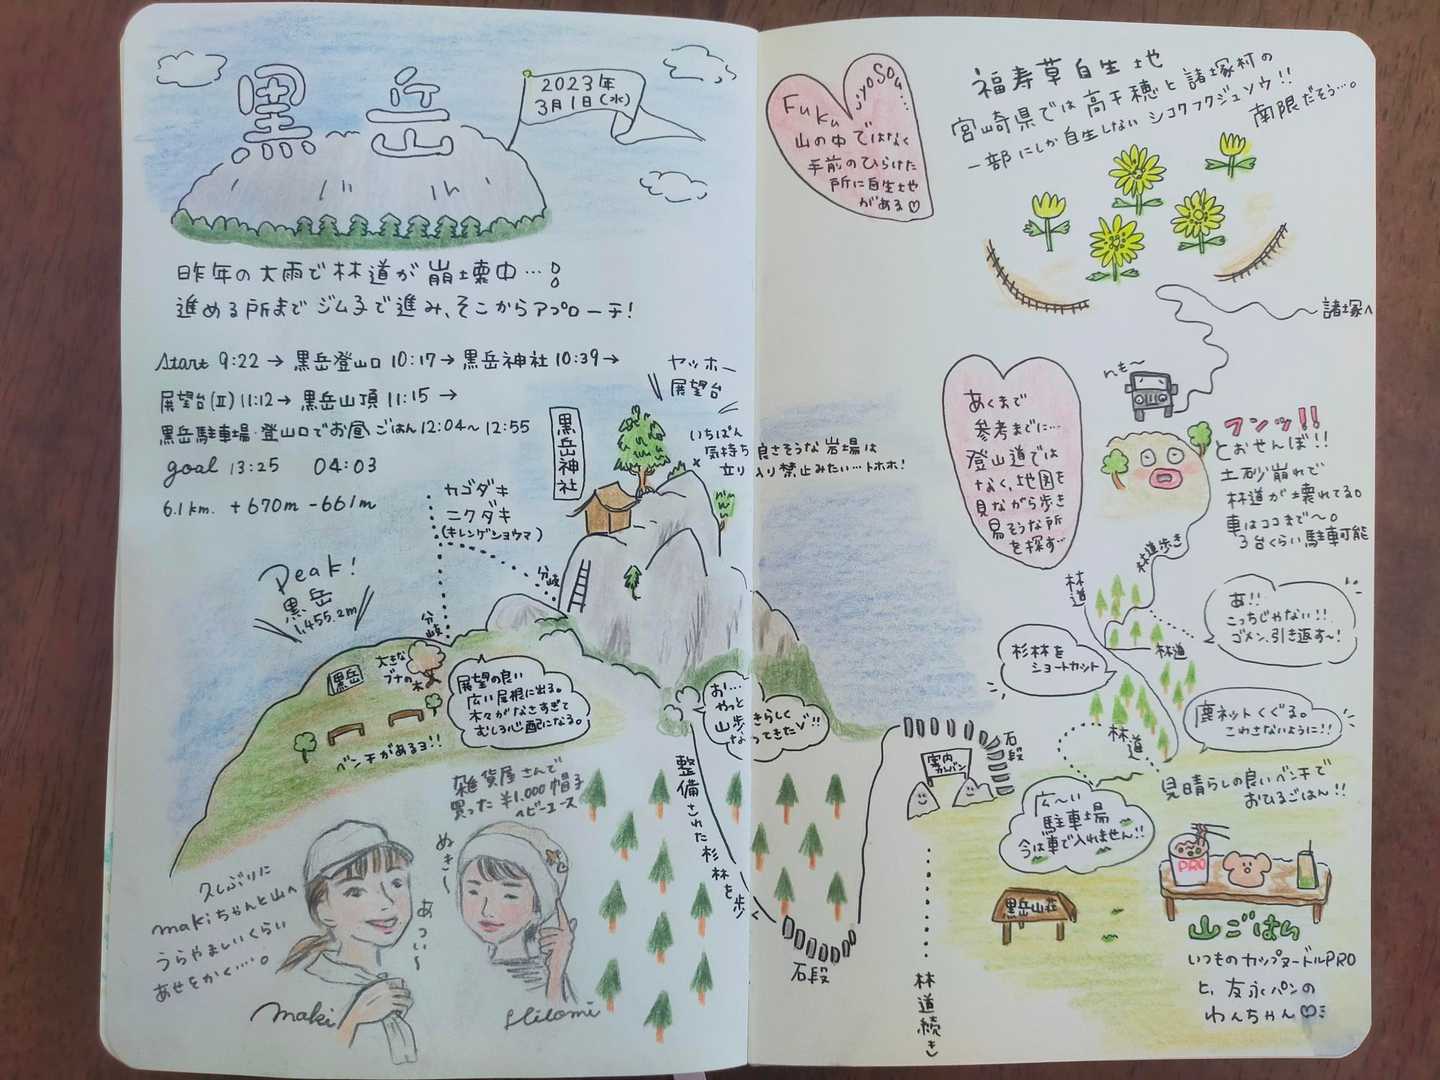 黒岳
2023年
3月1日(水)
昨年の大雨で林道が崩壊中…!
進める所までジム子で進み、そこからアプローチ!
Start 9:22 → 黒岳登山口 10:17 → 黒岳神社 10:39 →
展望台(Ⅱ) 11:12 → 黒岳山頂 11:15 →
黒岳駐車場・登山口でお昼ごはん 12:04〜12:55
goal 13:25 04:03
6.1km. +670m -661m
ヤッホー
展望台
いちばん
気持ち良さそうな岩場は
立入り禁止みたい…トホホ!
黒岳神社
カゴダキ
ニクダキ
(キレンゲショウマ)
分岐
分岐
Peak!
黒岳
1,455.2m
黒岳
大きな
ブナの木
ベンチがあるヨ!!
展望の良い
広い尾根に出る。
木々がなさすぎて
むしろ心配になる。
お…
やっと
山歩きらしく
なってきたV!!
整備された杉林を歩く
石段
雑貨屋さんで
買った¥1,000帽子
ヘビーユース
ぬき〜
あつい〜
久しぶりに
makiちゃんと山へ
うらやましいくらい
あせをかく…。
maki
Hitomi
Fuku
jyosou…
山の中ではなく
手前のひらけた
所に自生地や
がある♡
福寿草自生地
宮崎県では高千穂と諸塚村の
一部にしか自生しないシコクフクジュソウ!!
南限だそう…。
諸塚へ
も〜
あくまで
参考までに…
登山道では
なく、地図を
見ながら歩き
易そうな所
を探す…
フンッ!!
とおせんぼ!!
土砂崩れで
林道が壊れてる。
車はココまで〜。
3台くらい駐車可能
林道歩き
林道
あ!!
こっちじゃない!!
ゴメン、引き返す〜!
杉林を
ショートカット
林道
鹿ネットくぐる。
こわさないように!!
林道
石段
案内
カンバン
広〜い
駐車場
今は車で入れません!!
見晴らしの良いベンチで
おひるごはん!!
PRO
黒岳山荘
山ごはん
いつものカップヌードルPRO
と、友永パンの
わんちゃん♡
林道続き